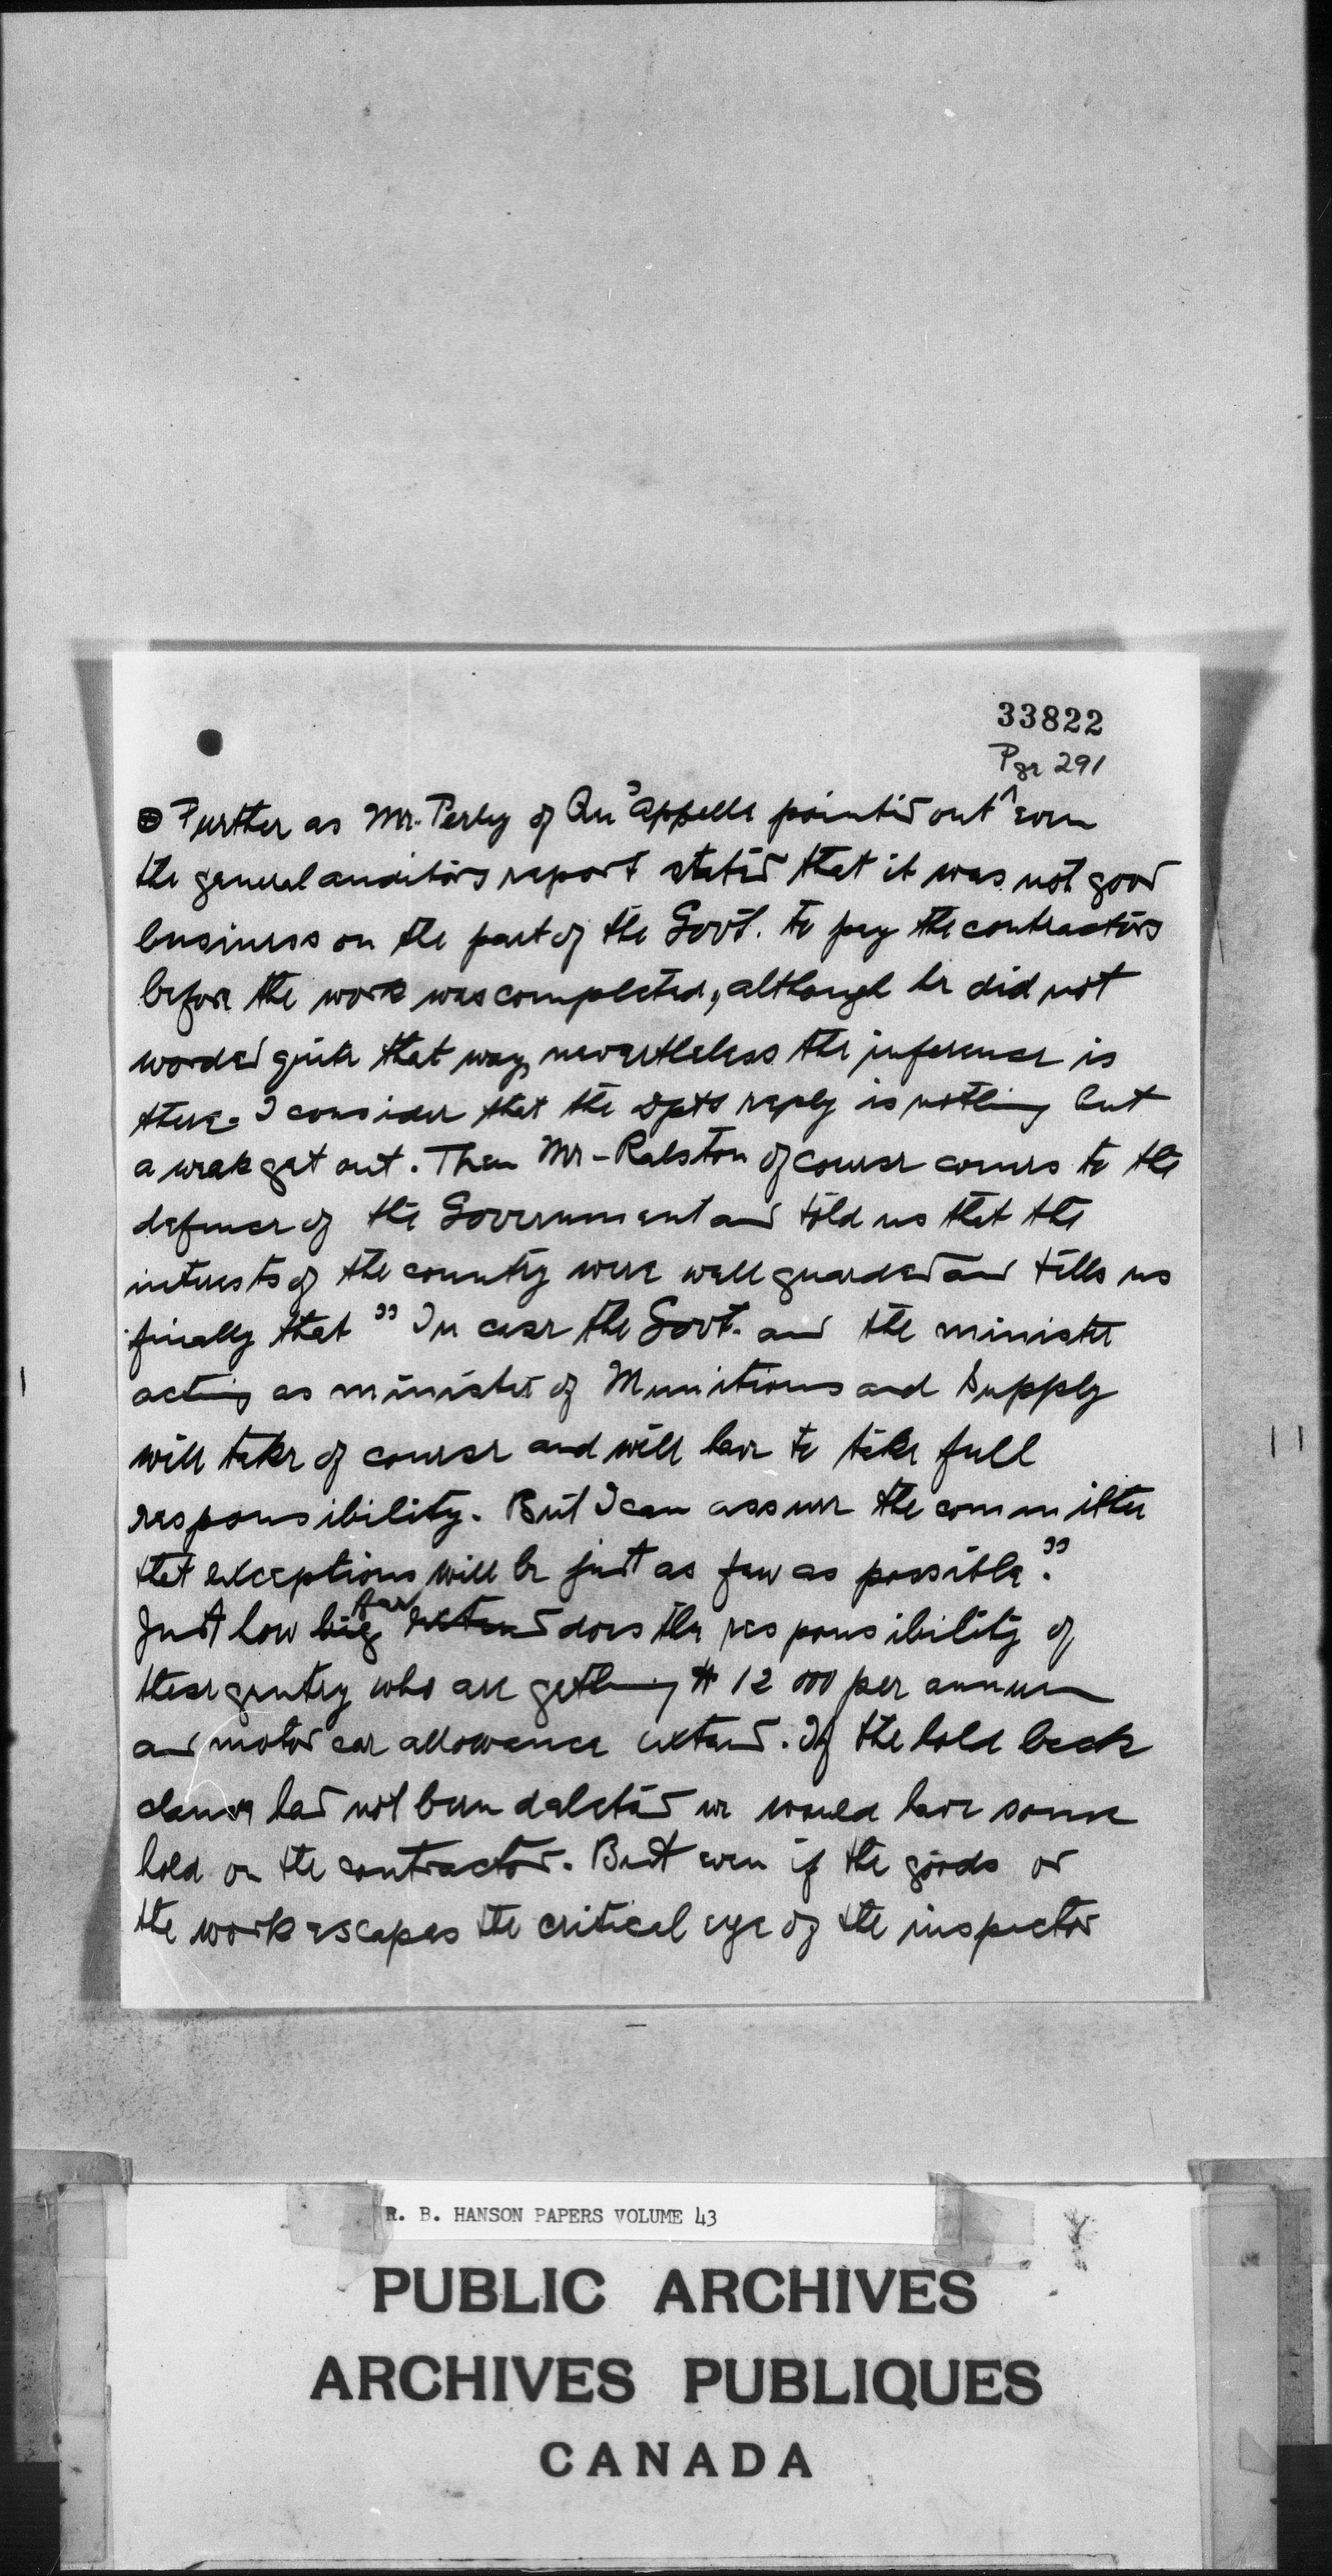 33822
Pgr 291
Further as Mr. Perley of Qu'appelle pointed out even
the general auditors report stated that it was not good
business on the part of the Govt. to pay the contractors
before the work was completed, although he did not
worded quite that way, nevertheless the inference is
there. I consider that the Dpts reply is nothing but
a weak get out. Then Mr-Ralston of course comes to the
defence of the Government and told us that the
interests of the country were well guarded and tells us
finally that "In case the Govt. and the minister
acting as minister of Munitions and Supply
will take of course and will have to take full
responsibility. But I can assure the committee
that exceptions will be just as few as possible."
far
Just how big does the responsibility of
these gentry who are getting $ 12 000 per annum
and motor car allowance extend. If the hold back
clause had not been deleted we would have some
hold on the contractor. But even if the goods or
the work escapes the critical eye of the inspector
R. B. HANSON PAPERS VOLUME 43
PUBLIC ARCHIVES
ARCHIVES PUBLIQUES
CANADA